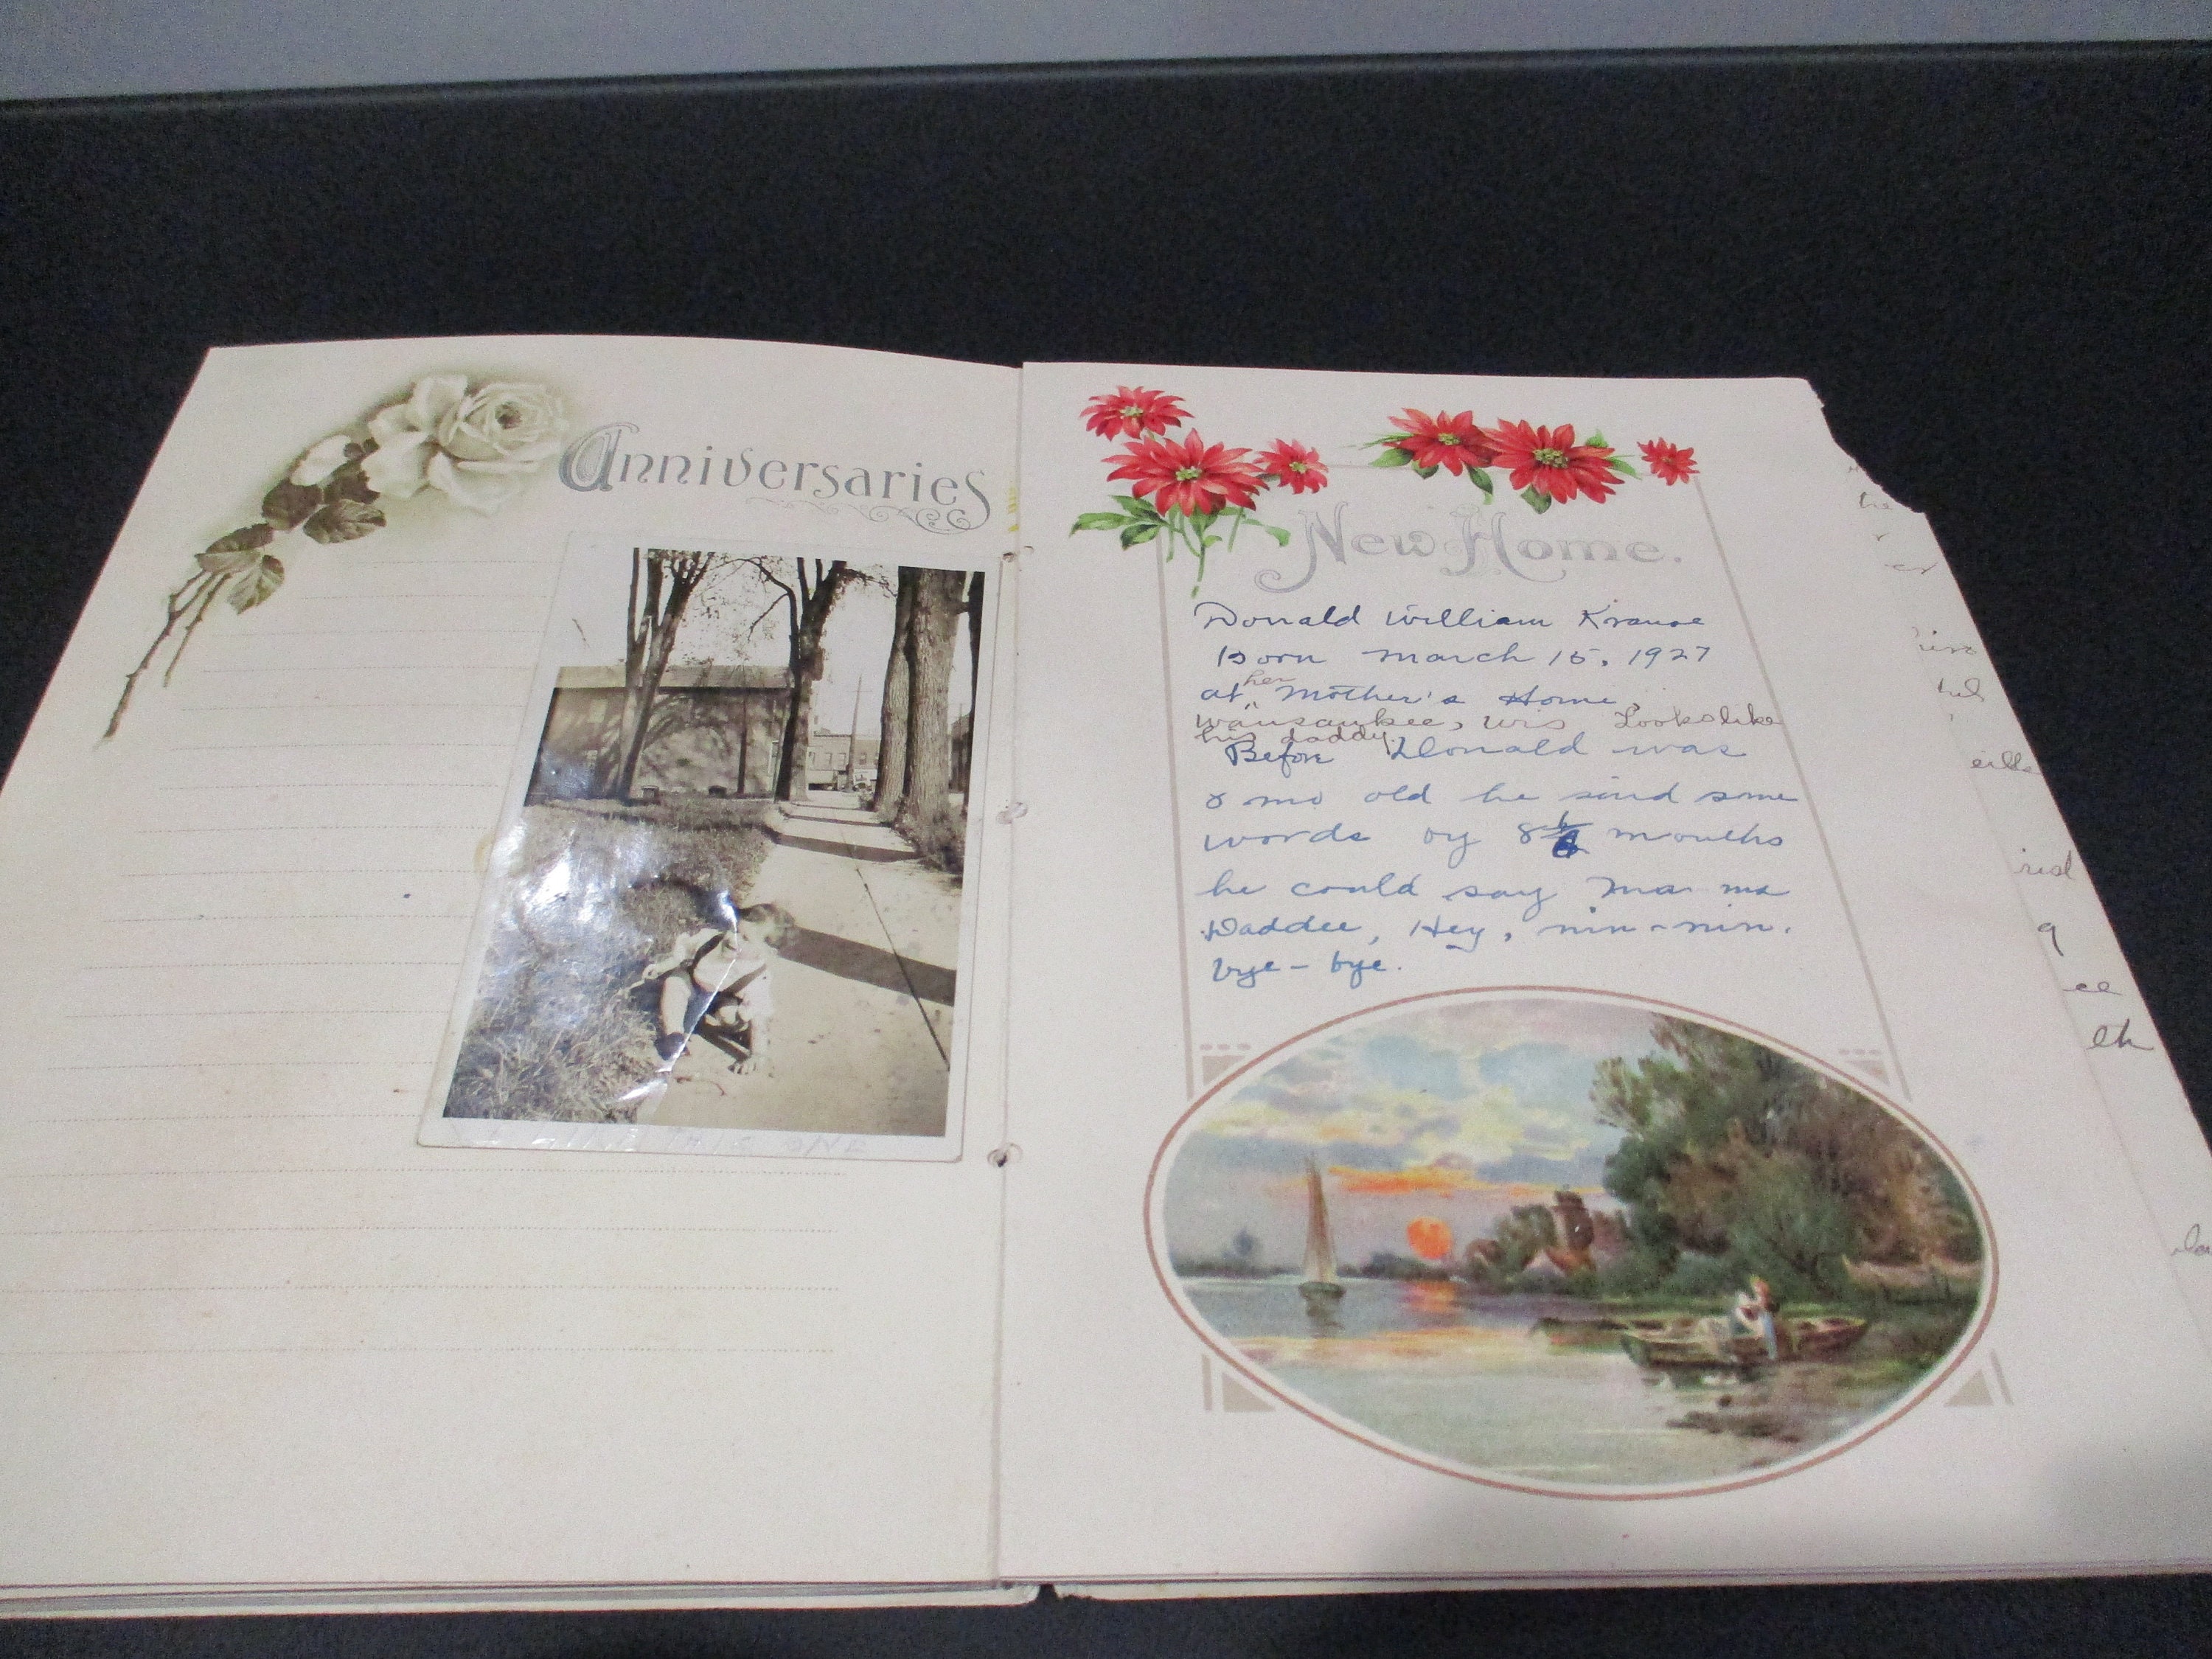 Anniversaries
THIS ONE
New Home.
Donald William Krause
Born March 15, 1927
her
at " Mother's Home,
Wausaukee, Wis Looks like
his daddy.
Before Donald was
8 mo old he said some
words by 8 months
he could say Ma ma
Daddee, Hey, nin-nin.
bye-bye.
he
er
eills
ried
g
ce